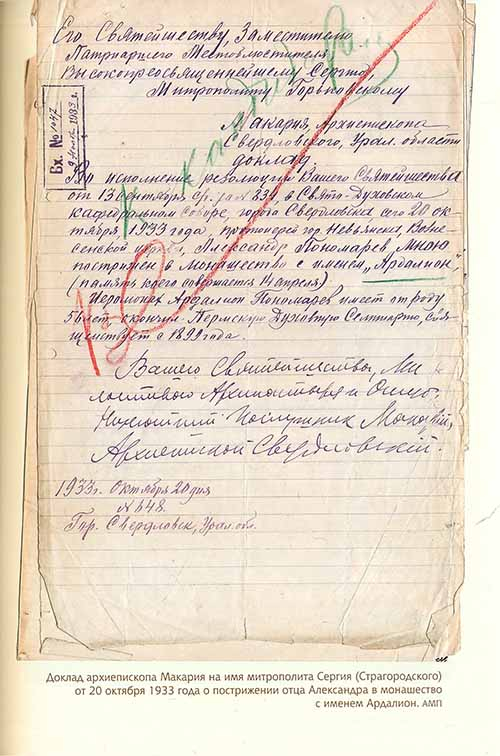 Его Святейшеству, Заместителю
Патриаршего Местоблюстителя,
Высокопреосвященнейшему Сергию
Митрополиту Горьковскому
Макария, Архиепископа
Свердловского, Урал. области
доклад.
Вх. № 1047
1933 г.
Во исполнение резолюции Вашего Святейшества
от 13 сентября с/г. за № 839, в Свято-Духовском
кафедральном Соборе, города Свердловска сего 20 ок-
тября 1933 года, протоиерей гор. Невьянска, Возне-
сенской церкви, Александр Пономарев, мною
пострижен в монашество с именем „Ардалион",
(память коего совершается 14 апреля)
Иеромонах Ардалион Пономарев, имеет от роду
лет, окончил Пермскую Духовную Семинарию, свя-
щенствует с года.
Вашего Святейшества, Ми-
лостивого Архипастыря и Отца,
послушник Макарий,
Архиепископ Свердловский.
1933 г. Октября 20 дня
№ 648.
Гор. Свердловск, Урал. обл.
Доклад архиепископа Макария на имя митрополита Сергия (Страгородского)
от 20 октября 1933 года о пострижении отца Александра в монашество
с именем Ардалион. АМП